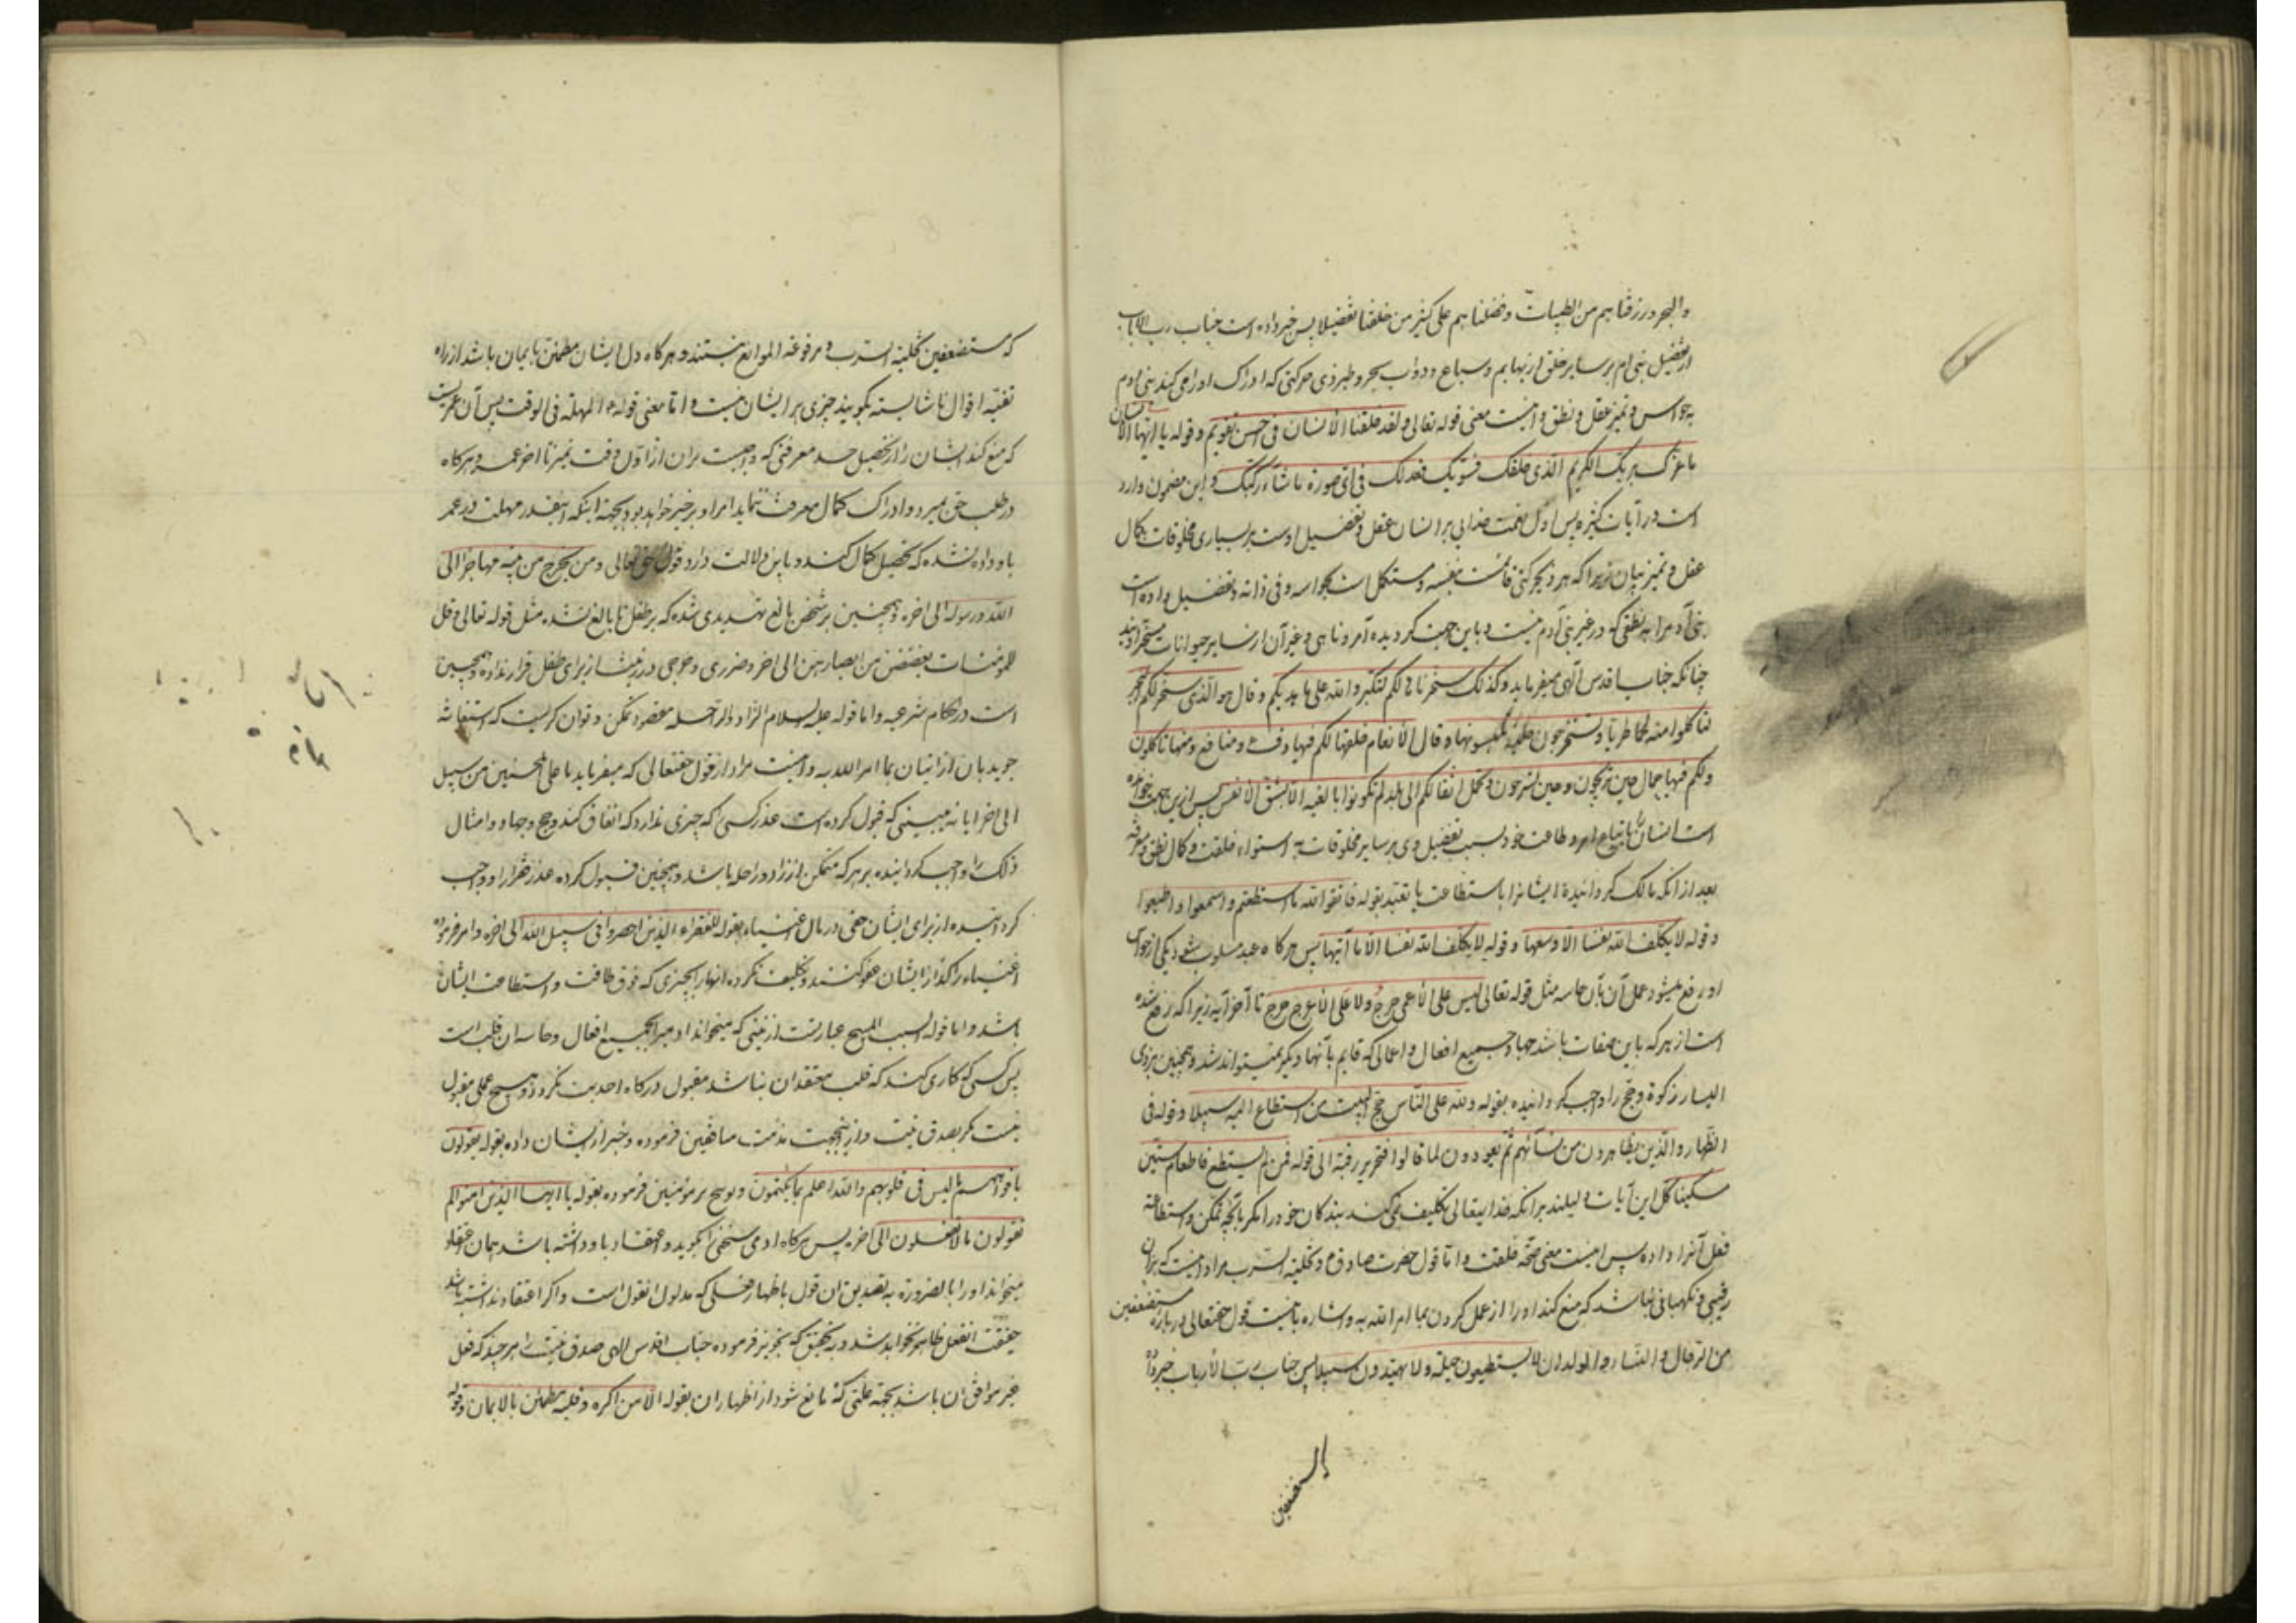 والبحر و رزقناهم من الطیبات و فضلناهم علی کثیر من خلقنا تفضیلا پس خبر داده است جناب رب الارباب
از تفضیل بنی ادم بر سایر خلق از بهایم و سباع و دواب بحر و طیر و ذی حرکتی که ادراک او را می کند بنی ادم
بحواس و تمیز عقل و نطق و اینست معنی قوله تعالی و لقد خلقنا الانسان فی احسن تقویم و قوله یا ایها الانسان
ما غرک بربک الکریم الذی خلقک فسویک فعدلک فی ای صورة ما شاء رکبک و این مضمون وارد
است در آیات کثیره پس اول نعمت خدایی بر انسان عقل و تفضیل اوست بر بسیاری مخلوقات بکمال
عقل و تمیز بیان زیرا که هر ذیحرکتی قائمست بنفسه و مستکمل است بحواسه و فی ذاته و تفضیل داده است
بنی آدم را به نطقی که در غیر بنی آدم نیست و باین جهت گردیده آمر و ناهی و غیر آن از سایر حیوانات مسخر اویند
چنانکه جناب اقدس آلهی میفرماید و کذلک سخرناها لکم لتکبروا الله علی ما هدیکم و قال هو الذی سخر لکم البحر
لتاکلوا منه لحما طریا و تستخرجون حلیة تلبسونها و قال الانعام خلقها لکم فیها دفء و منافع و منها تاکلون
ولکم فیها جمال حین تریحون و حین تسرحون و تحمل اثقالکم الی بلد لم تکونوا بالغیه الا بشق الانفس پس ازین جهت خوانده
است انسان را باتباع امر و طاعت خود بسبب تفضیل وی بر سایر مخلوقات به استواء خلقت و کمال نطق و معرفه
بعد از آنکه مالک گردانیده ایشانرا باستطاعت ما تعبد بقوله فاتقوا الله ما استطعتم و اسمعوا و اطیعوا
و قوله لا یکلف الله نفسا الا وسعها و قوله لا یکلف الله نفسا الا ما آتیها پس هرگاه عبد مسلوب شود یکی از حواس
او رفع میشود عمل آن بآن حاسه مثل قوله تعالی لیس علی الاعمی حرج ولا علی الاعرج حرج تا آخر آیه زیرا که رفع شده
است از هر که باین صفات باشد جهاد و جمیع افعال و اعمالی که قایم بآنها دیگر نمیتواند شد و همچنین بر ذی
الیسار زکوة و حج را واجب گردانیده بقوله و لله علی الناس حج البیت من استطاع الیه سبیلا و قوله فی
الظهار والذین یظاهرون من نسآئهم ثم یعودون لما قالوا فتحریر رقبة الی قوله فمن لم یستطع فاطعام ستین
مسکینا کل این آیات دلیلند بر آنکه خدایتعالی تکلیف نمی کند بندکان خود را مگر بآنچه تمکن و استطاعة
فعل آنرا داده پس اینست معنی صحة خلقت و اما قول حضرت صادق ع و تخلیة السرب مراد اینست که بران
رقیبی و نگهبانی نباشد که منع کند او را از عمل کردن بما امر الله به و اشاره باینست قول حقتعالی درباره مستضعفین
من الرجال و النساء و الولدان لا یستطیعون حیلة ولا یهتدون سبیلا پس جناب رب الارباب خبر داده
که مستضعفین تخلیة السرب و مرفوعة الموانع نیستند و هرگاه دل ایشان مطمئن بایمان باشد از راه
تقیه اقوال ناشایسته بگویند چیزی بر ایشان نیست و اما معنی قوله ع المهلة فی الوقت پس آن عمریست
که منع کند ایشان را از تحصیل حد معرفتی که واجبست بران از اول وقت تمیز تا اخر عمر و هرگاه
در طلب حق میرد و ادراک کمال معرفت ننماید امر او بر خیر خواهد بود بجهة اینکه اینقدر مهلت در عمر
باو داده نشده که تحصیل کمال کند و باین دلالت دارد قول حق تعالی و من یخرج من بیته مهاجرا الی
الله و رسوله الی اخره و همچنین بر شخص بالغ تهدیدی شده که بر طفل نا بالغ نشده مثل قوله تعالی و قل
للمومنات یغضضن من ابصارهن الی اخر و ضرری و حرجی در زینت از برای طفل قرار نداده و همچنین
است در احکام شرعیه و اما قوله علیه السلام الزاد و الراحله مقصود تمکن و توان گریست که استغاثه
جوید بان از اتیان بما امر الله به و اینست مراد از قول حقتعالی که میفرماید ما علی المحسنین من سبیل
الی اخر ایا نه میبینی که قبول کرده است عذر کسی که چیزی ندارد که انفاق کند و حج و جهاد و امثال
ذلک را واجب گردانیده بر هر که متمکن از زاد و راحله باشد و همچنین قبول کرده عذر فقرا را و واجب
گردانیده از برای ایشان حقی در مال اغنیاء بقوله للفقراء الذین احصروا فی سبیل الله الی اخره و امر فرموده
اغنیاء را که از ایشان عفو کنند و تکلیف نکرده انها را بچیزی که فوق طاقت و استطاعت ایشان
باشد و اما قوله السبب المهیج عبارتست از نیتی که میخواند ادمیرا بجمیع افعال و حاسه ان قلب است
پس کسی که کاری کند که قلب معتقد ان نباشد مقبول درگاه احدیت نگردد و هیچ عملی مقبول
نیست مگر بصدق نیت و از اینجهت مذمت منافقین فرموده و خبر از ایشان داده بقوله یقولون
بافواههم ما لیس فی قلوبهم و الله اعلم بما یکتمون و توبیخ بر مؤمنین فرموده بقوله یا ایها الذین امنوا لم
تقولون ما لا تفعلون الی اخر پس هرگاه ادمی سخنی را بگوید و اعتقاد باو داشته باشد همان اعتقاد
میخواند او را بالضرورة به تصدیق ان قول باظهار فعلی که مدلول انقول است و اگر اعتقاد نداشته باشد
حقیقت انفعل ظاهر نخواهد شد و بتحقیق که تجویز فرموده جناب اقدس الهی صدق نیت را هر چند که فعل
غیر موافق ان باشد بجهة علتی که مانع شود از اظهار ان بقوله الا من اکره و قلبه مطمئن بالایمان و قوله